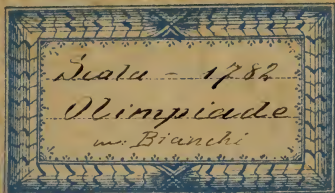 Scala - 1782
Olimpiade
m: Bianchi